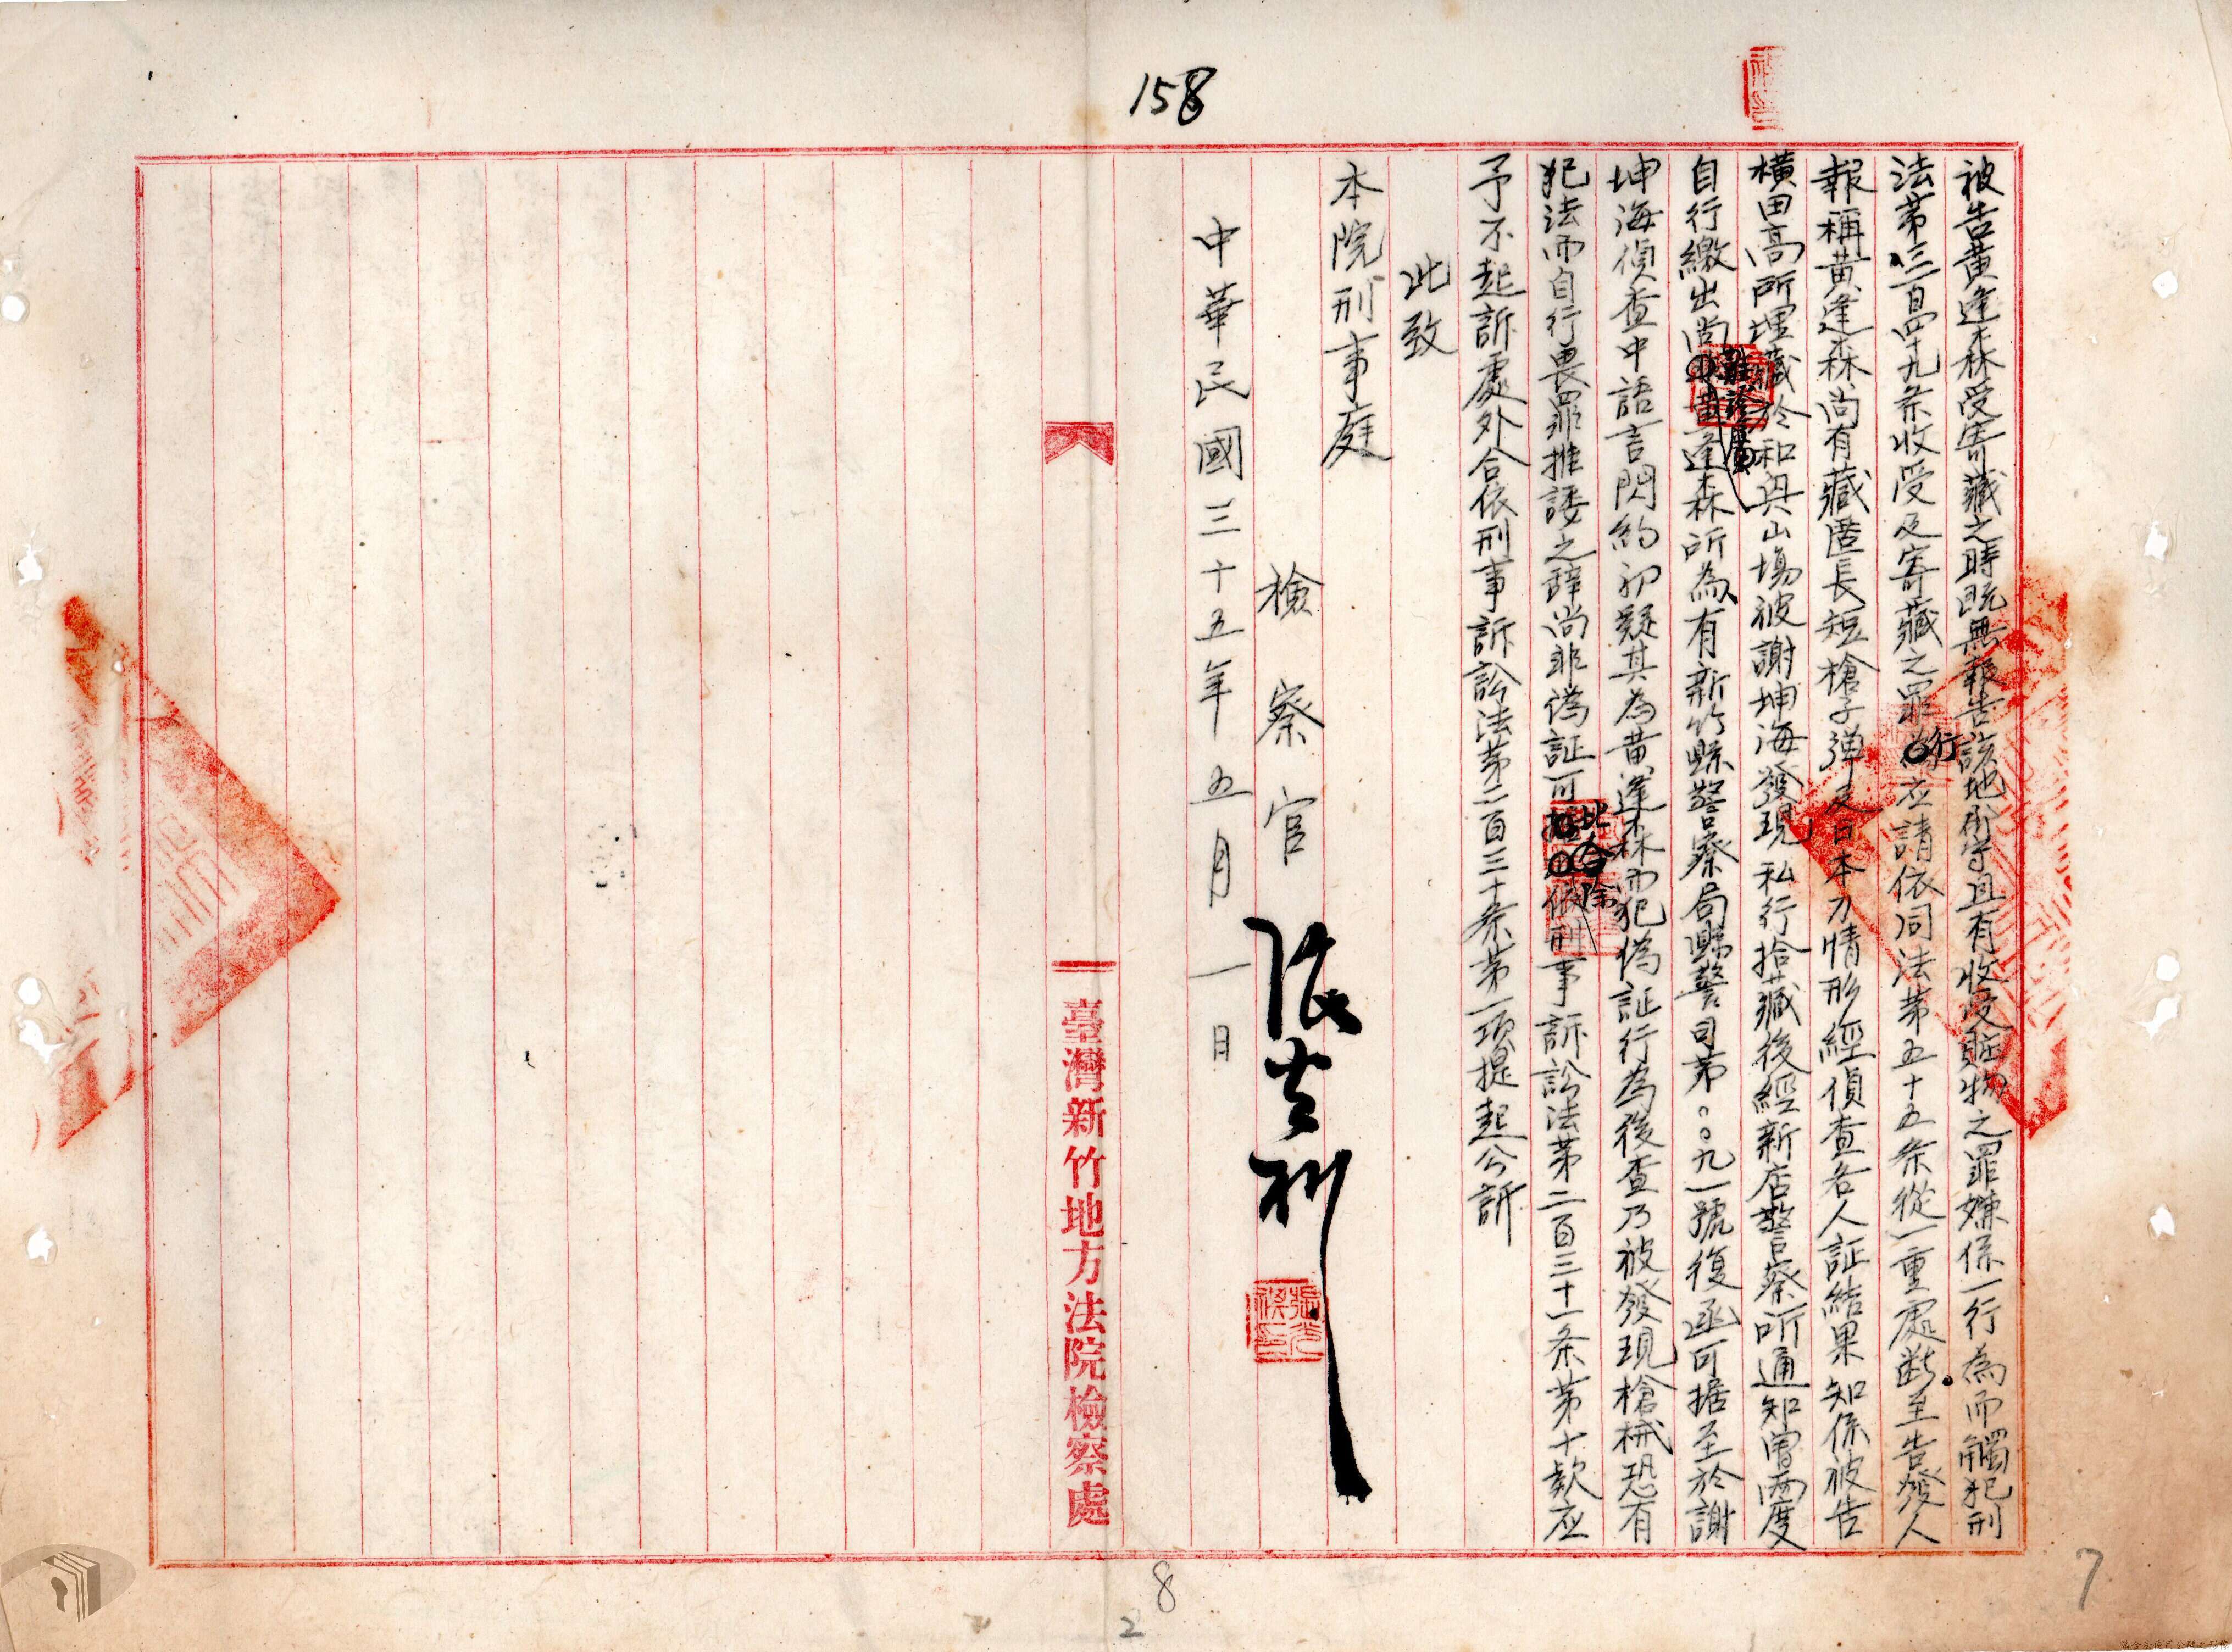 158
被告黃逢森受寄藏之時既無報告該地所守且有收受贓物之罪嫌係一行為而觸犯刑
法第三百四十九条收受及寄藏之罪行应請依同法第五十五条從一重處断至告發人
報稱黃逢森尚有藏匿長短槍子弹及日本刀情形經偵查各人証結果知係被告
橫田高所埋藏於和興山場被謝坤海發現私行拾藏後經新店警察所通知曾兩度
自行繳出尚難證實黃逢森所為有新竹縣警察局縣警司第○○九一號復函可據至於謝
坤海偵查中語言閃約初疑其為黃逢森而犯偽証行為後查乃被發現槍械恐有
犯法而自行畏罪推諉之辞尚非偽証可比合除刑事訴訟法第二百三十一条第十款应
予不起訴處外合依刑事訴訟法第二百三十条第一項提起公訴
此致
本院刑事庭
檢察官
中華民國三十五年五月一日
臺灣新竹地方法院檢察處
8
2
7